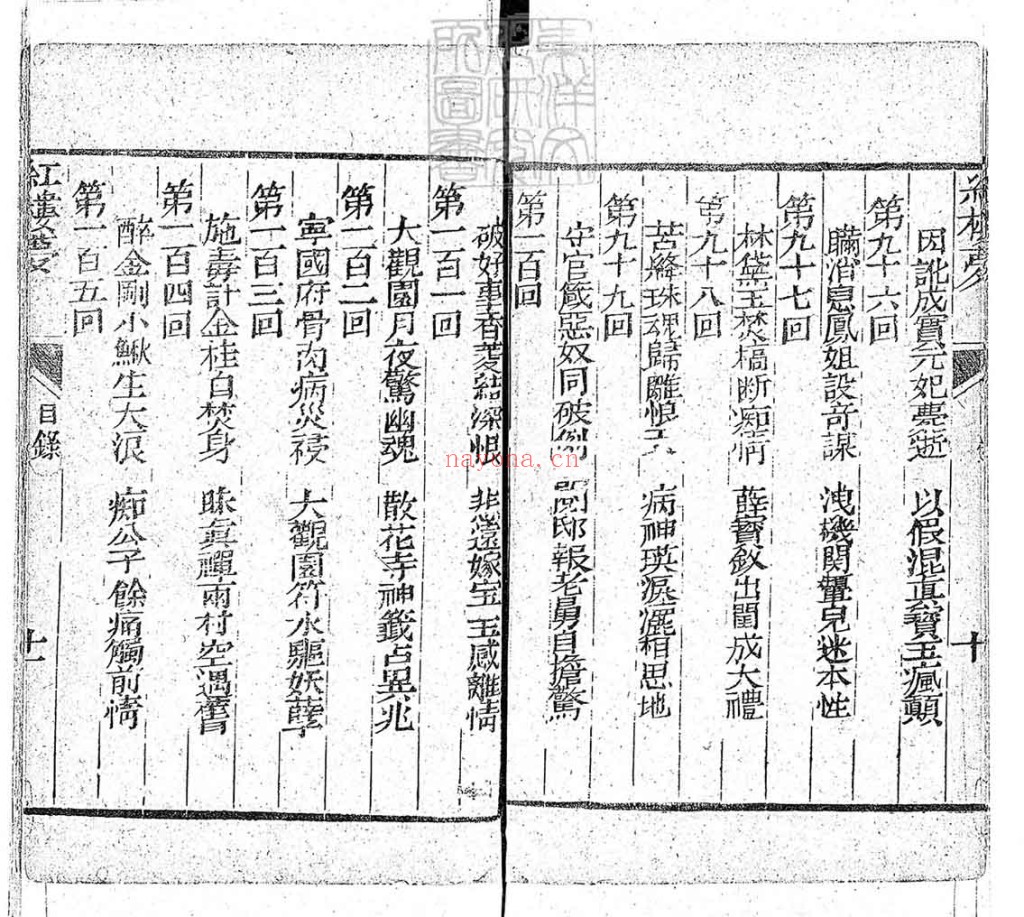 紅樓夢
十
因訛成實元妃薨逝 以假混真寶玉瘋顛
第九十六回
瞞消息鳳姐設奇謀 洩機関顰兒迷本性
第九十七回
林黛玉焚槁断痴情 薛寶釵出閨成大禮
第九十八回
苦絳珠魂歸離恨天 病神瑛淚灑相思地
第九十九回
守官箴惡奴同破例 閱邸報老舅自擔驚
第一百回
破好事香菱結深恨 悲遠嫁宝玉感離情
第一百一回
大觀園月夜驚幽魂 散花寺神籤占異兆
第一百二回
寧國府骨肉病災祲 大觀園符水驅妖孽
第一百三回
施毒計金桂自焚身 昧真禪雨村空遇舊
第一百四回
醉金剛小鰍生大浪 痴公子餘痛觸前情
第一百五回
紅樓夢
目錄
十一
nayona.cn